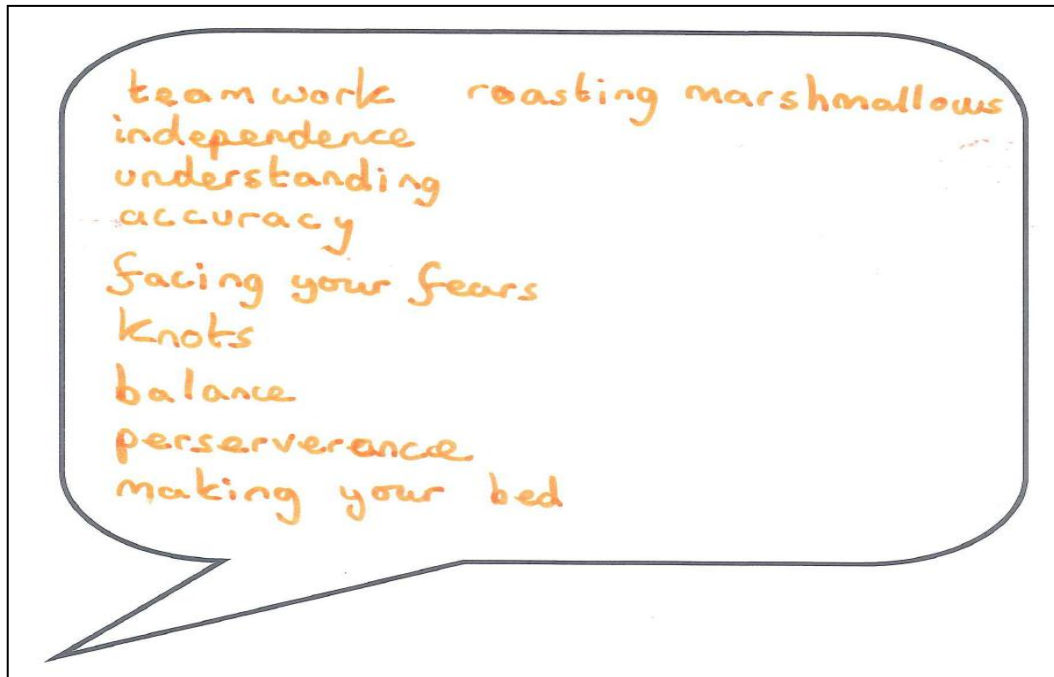 team work roasting marshmallows
independence
understanding
accuracy
facing your fears
knots
balance
perserverance
making your bed